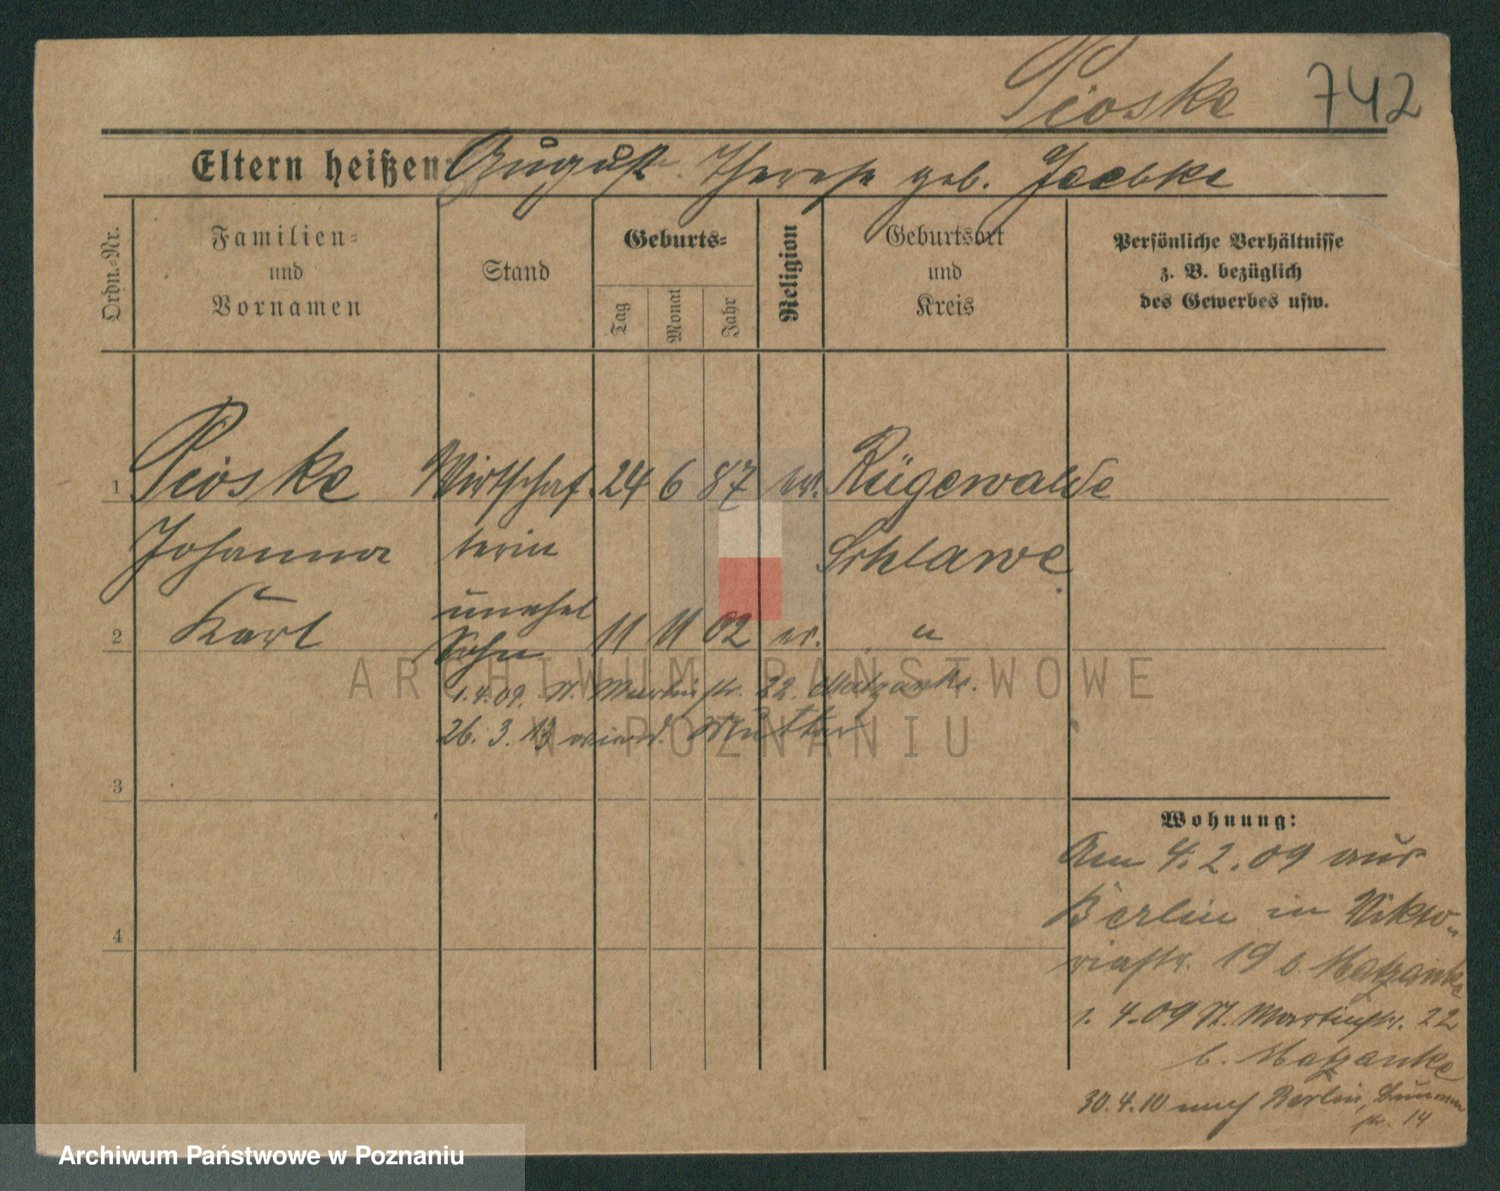 Pioske 742
Eltern heißen: August Therese geb. Jaebke
Ordn.-Nr.
Familien-
und
Vornamen
Stand
Geburts-
Tag
Monat
Jahr
Religion
Geburtsort
und
Kreis
Persönliche Verhältnisse
z. B. bezüglich
des Gewerbes usw.
1 Pioske Wirtschaf- 24 6 87 ev. Rügenwalde
Johanna terin Schlawe
unehel
2 Karl Sohn 11 11 02 ev. "
1.4.09. St. Martinstr. 22. Matzanke.
26. 3. 13 Mutter
3
Wohnung:
Am 4.2.09 aus
Berlin in Vikto-
riastr. 19 b. Matzanke
4
1. 4.09 St. Martinstr. 22
b. Matzanke
30.4.10 nach Berlin,
str. 14
ARCHIWUM PAŃSTWOWE
W POZNANIU
Archiwum Państwowe w Poznaniu